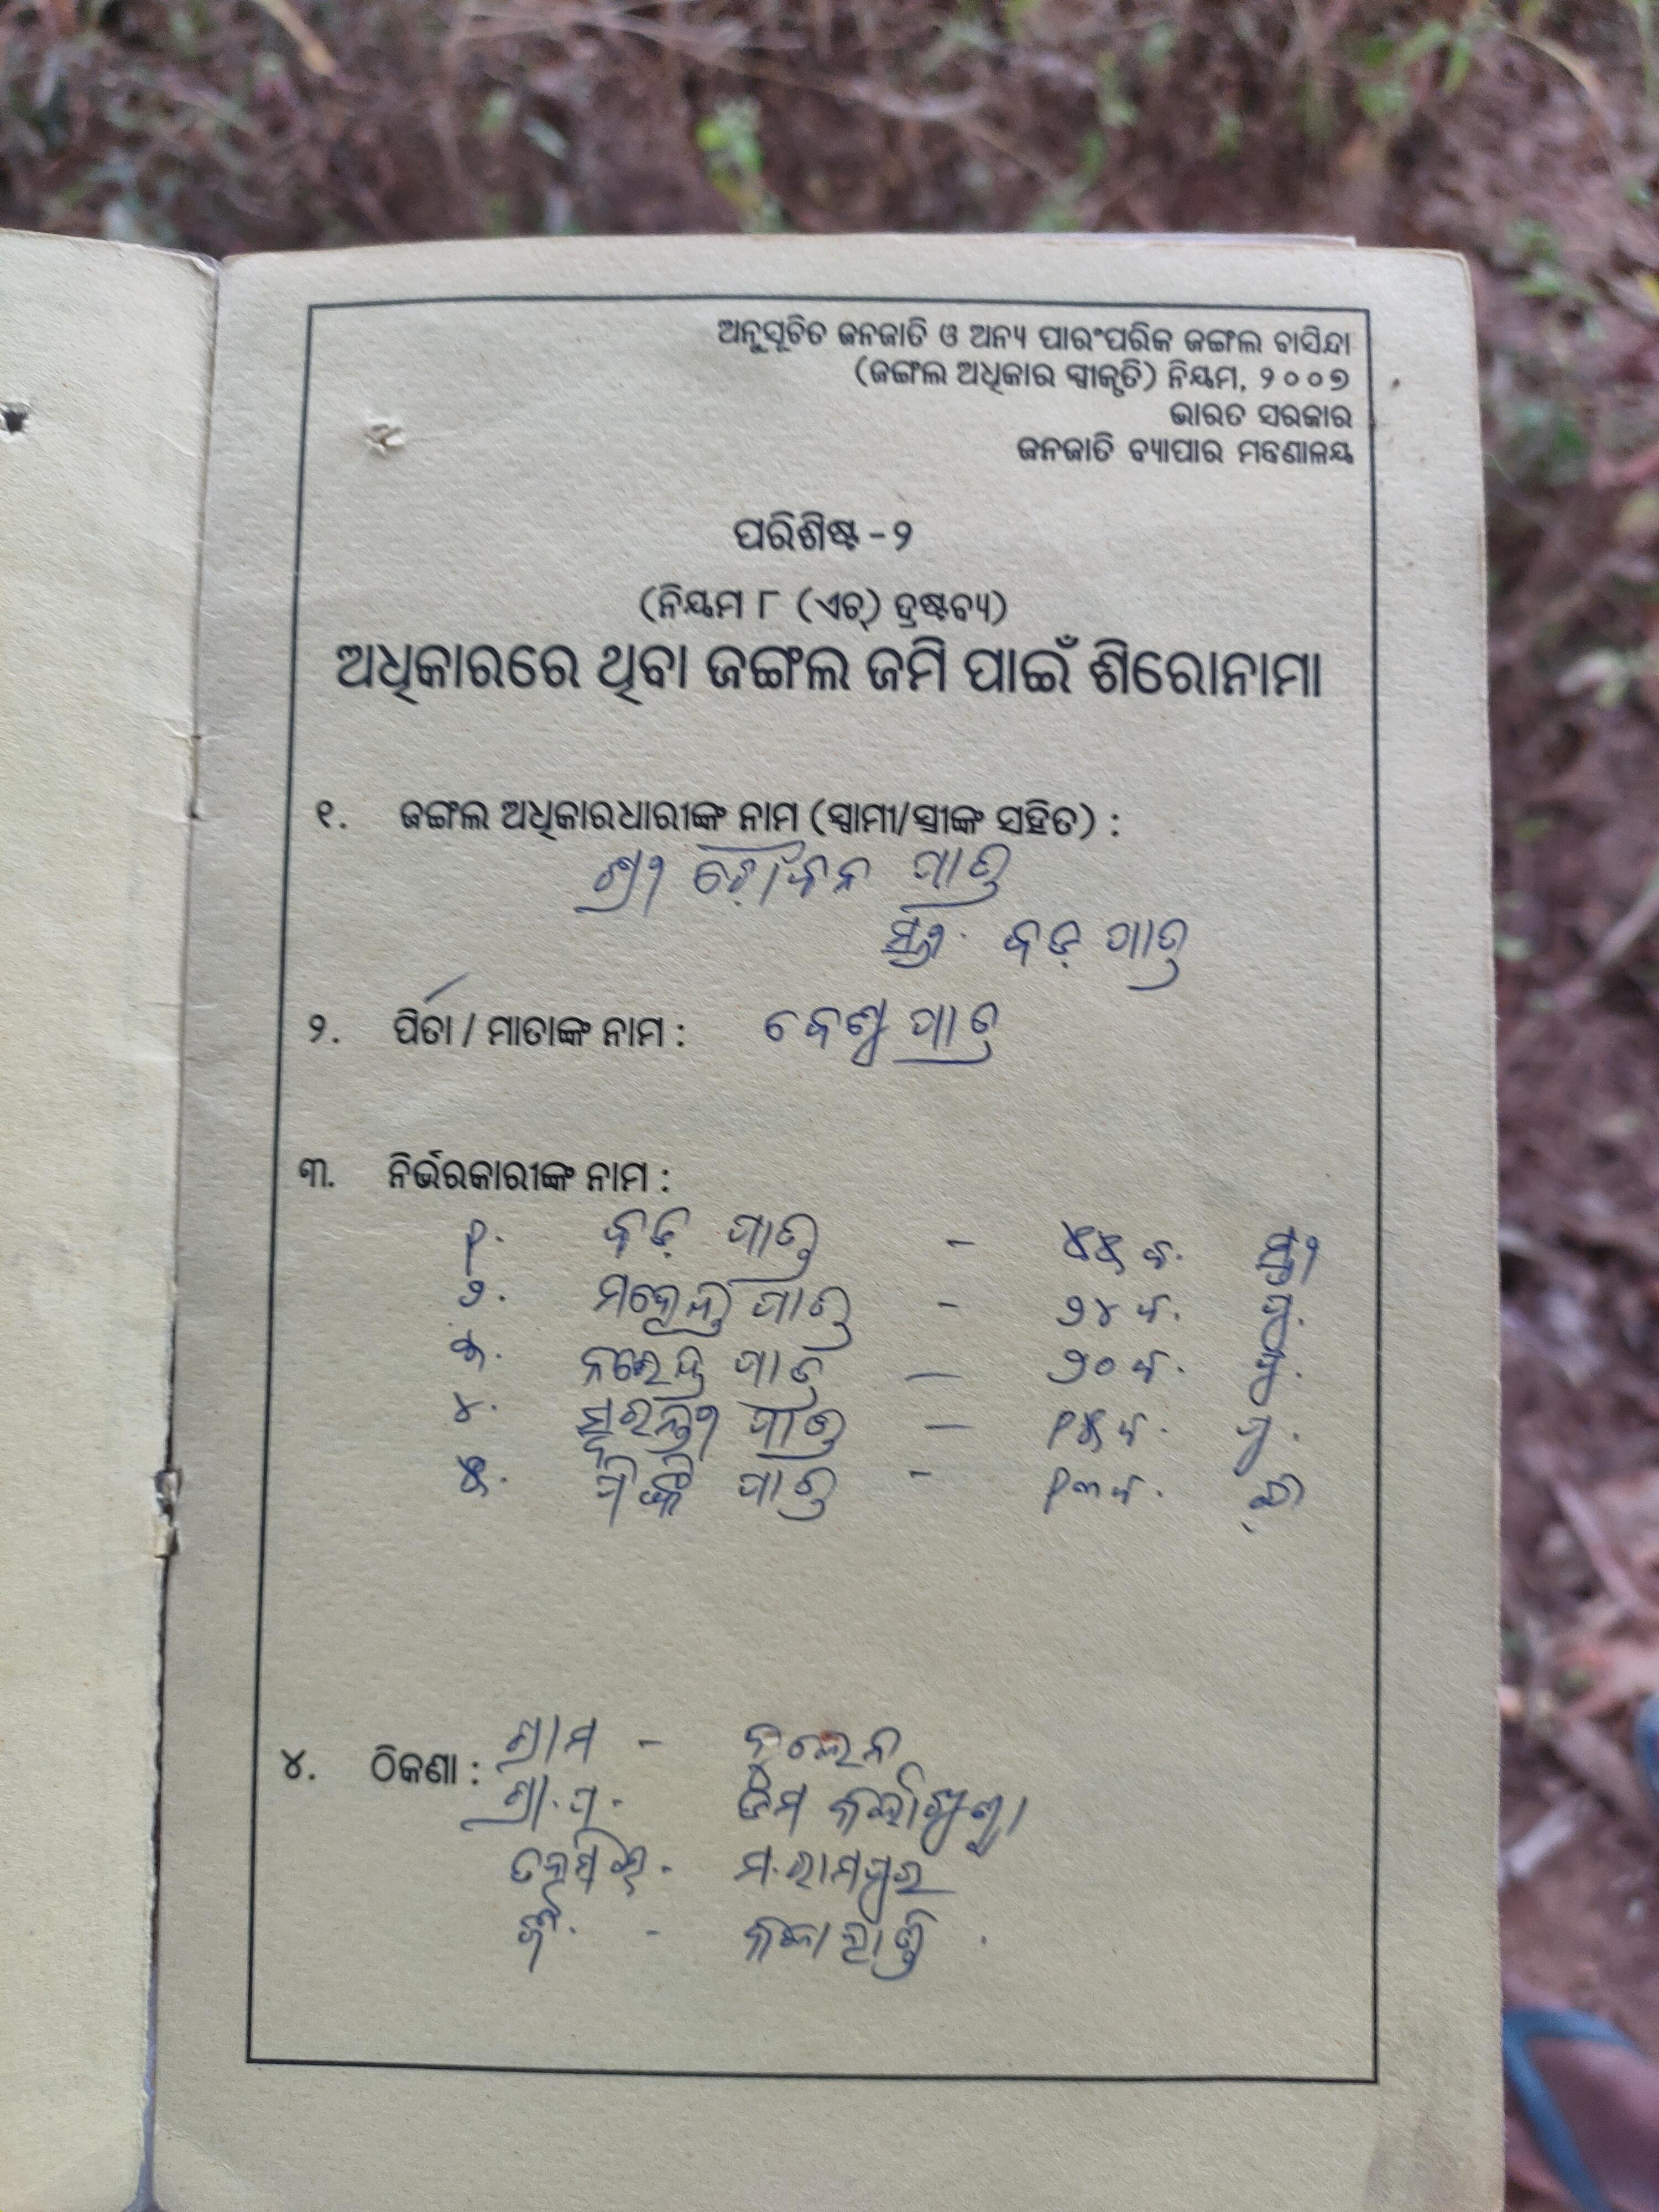 ଅନୁସୂଚିତ ଜନଜାତି ଓ ଅନ୍ୟ ପାରଂପରିକ ଜଙ୍ଗଲ ବାସିନ୍ଦା
(ଜଙ୍ଗଲ ଅଧିକାର ସ୍ୱୀକୃତି) ନିୟମ, ୨୦୦୭
ଭାରତ ସରକାର
ଜନଜାତି ବ୍ୟାପାର ମନ୍ତ୍ରଣାଳୟ
ପରିଶିଷ୍ଟ - ୨
(ନିୟମ ୮ (ଏଚ୍) ଦ୍ରଷ୍ଟବ୍ୟ)
ଅଧିକାରରେ ଥିବା ଜଙ୍ଗଲ ଜମି ପାଇଁ ଶିରୋନାମା
୧. ଜଙ୍ଗଲ ଅଧିକାରଧାରୀଙ୍କ ନାମ (ସ୍ୱାମୀ/ସ୍ତ୍ରୀଙ୍କ ସହିତ) :
ଶ୍ରୀ ପାତ୍ର
ସ୍ତ୍ରୀ. ପାତ୍ର
୨. ପିତା / ମାତାଙ୍କ ନାମ : ପାତ୍ର
୩. ନିର୍ଭରକାରୀଙ୍କ ନାମ :
୧. ପାତ୍ର - ୪୫ ବ. ସ୍ତ୍ରୀ
୨. ମହେନ୍ଦ୍ର ପାତ୍ର - ୨୪ ବ. ପୁ.
୩. ନରେନ୍ଦ୍ର ପାତ୍ର - ୨୦ ବ. ପୁ.
୪. ପାତ୍ର - ୧୫ ବ. ପୁ.
୫. ପିଙ୍କି ପାତ୍ର - ୧୩ ବ.
୪. ଠିକଣା : ଗ୍ରାମ -
ଗ୍ରା.ପ.
ତହସିଲ. ମ.ରାମପୁର
ଜି. - କଳାହାଣ୍ଡି